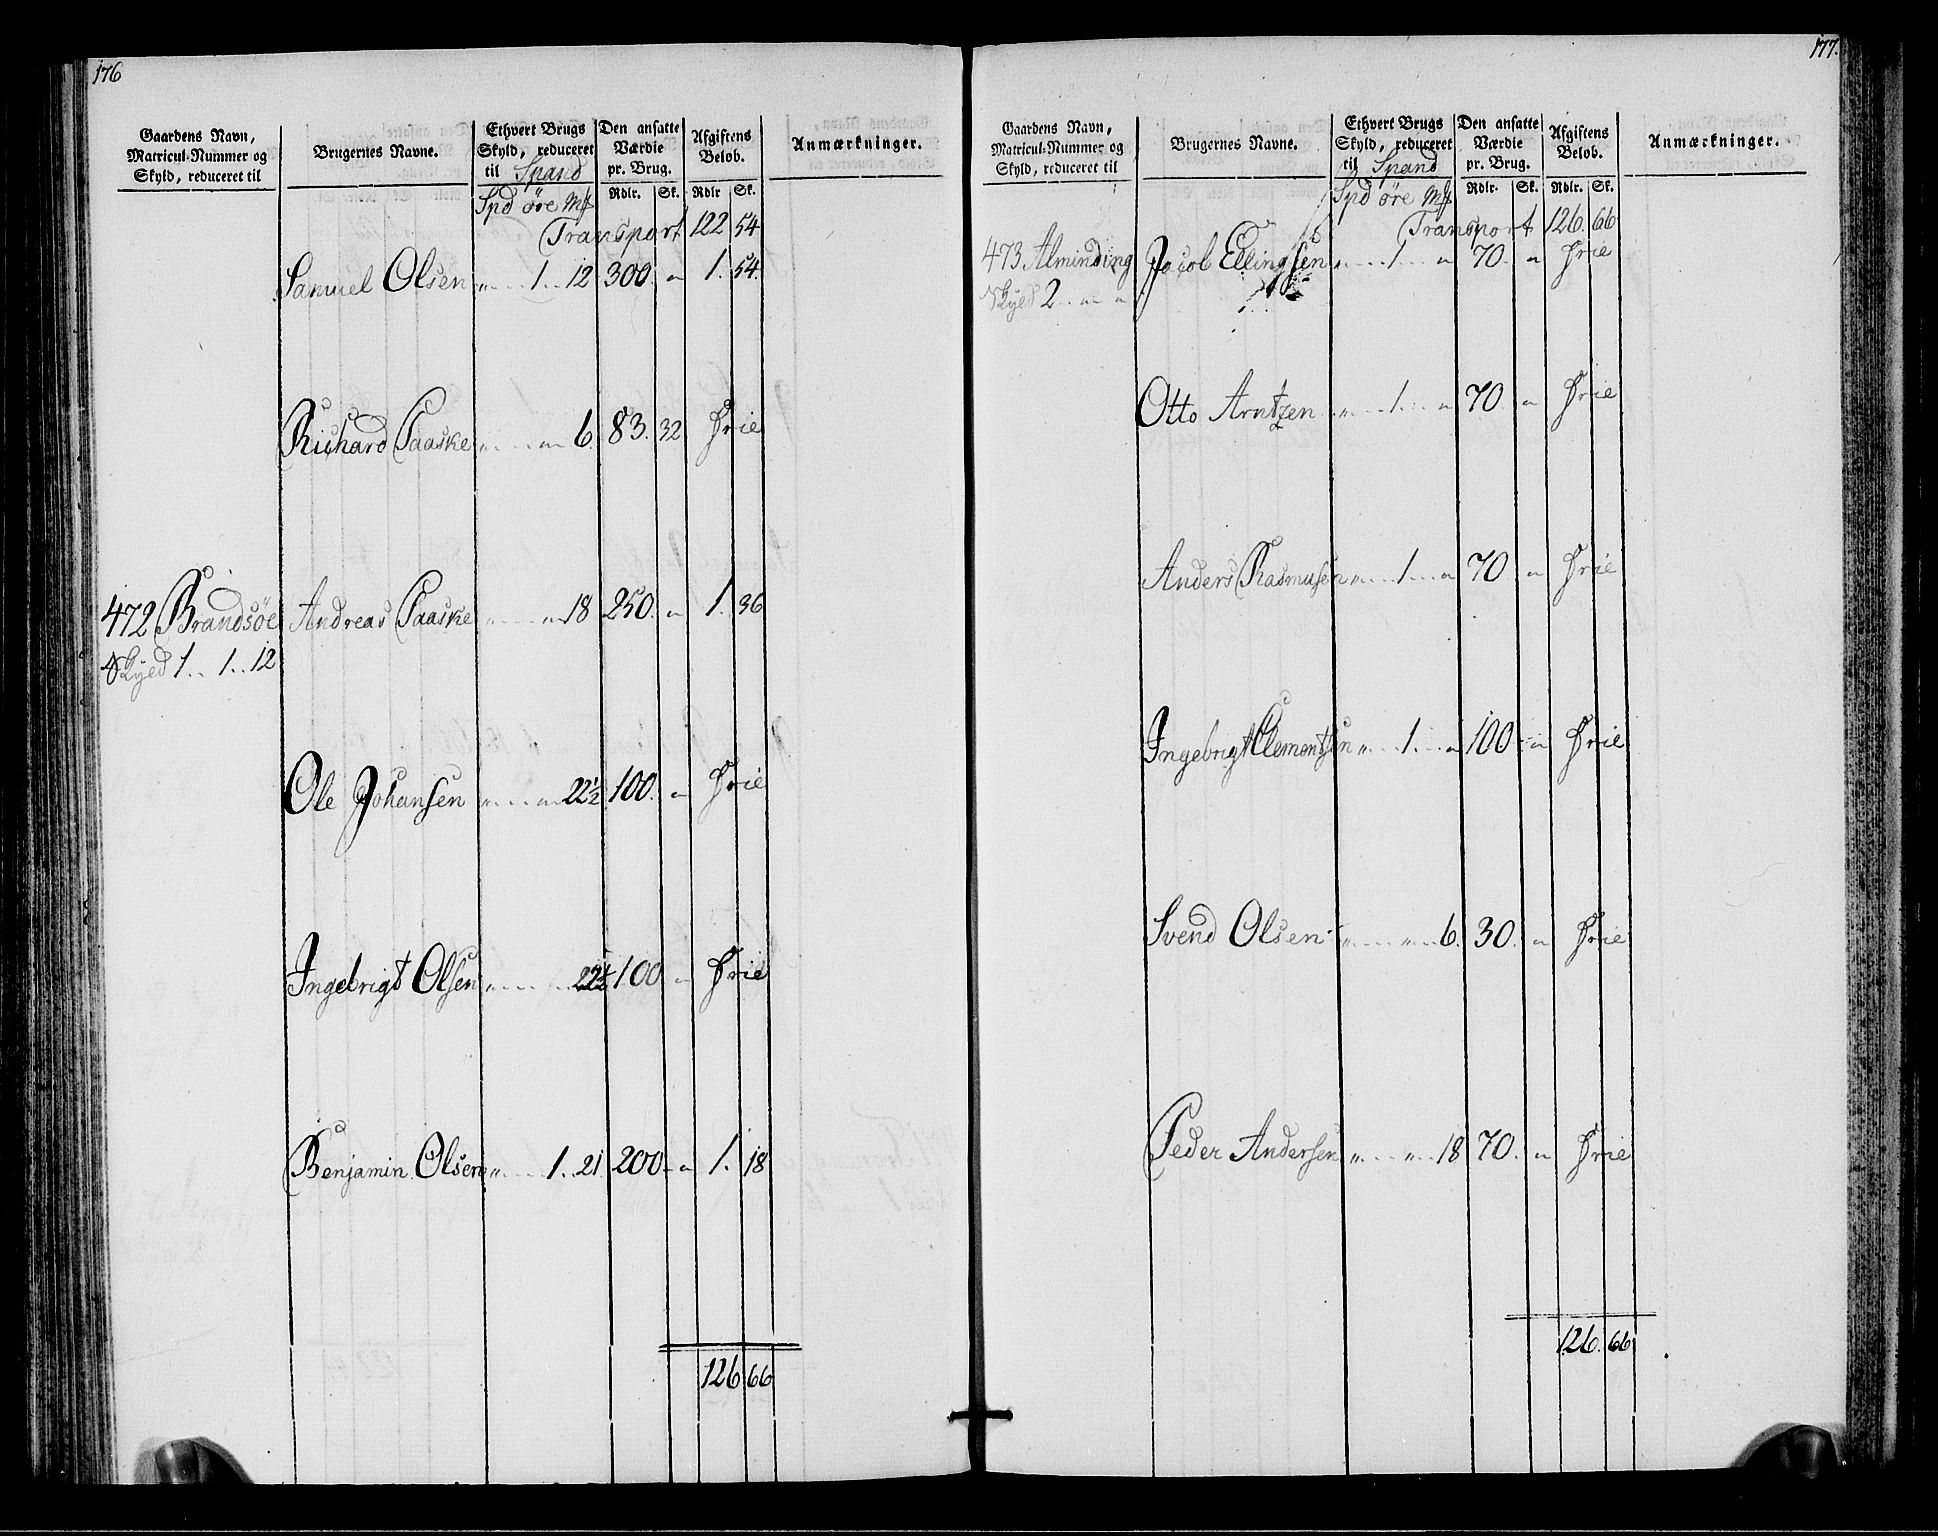 176
Gaardens Navn, Matricul-Nummer og Skyld, reduceret til
Brugernes Navne.
Ethvert Brugs Skyld, reduceret til Spand
Den ansatte Værdie pr. Brug.
Afgiftens Beløb.
Anmærkninger.
Spd øre mk Rdlr. Sk. Rdlr Sk.
Transport 122 54
Samuel Olsen " 1 12 300 " 1. 54.
Richard Paaske " " 6. 83. 32 Frie
472 Brandsøe Andreas Paaske " " 18 250. " 1. 36
Skyld 1 .. 1 .. 12
Ole Johansen " " 22½ 100. " Frie
Ingebrigt Olsen " " 22½ 100 " Frie
Benjamin Olsen " 1 .. 21 200 " 1. 18
126 66
177.
Gaardens Navn, Matricul-Nummer og Skyld, reduceret til
Brugernes Navne.
Ethvert Brugs Skyld, reduceret til Spand
Den ansatte Værdie pr. Brug.
Afgiftens Beløb.
Anmærkninger.
Spd øre mk Rdlr. Sk. Rdlr. Sk.
Transport 126. 66
473 Alminding Jacob Ellingsen " 1 " 70. " Frie
Skyld 2 .. " "
Otto Arntzen " 1 " 70. " Frie
Anders Rasmusen " 1 " 70 " Frie
Ingebrigt Clementsen " 1 " 100 " Frie
Svend Olsen " " 6. 30. " Frie
Peder Andersen " " 18 70. " Frie
126. 66